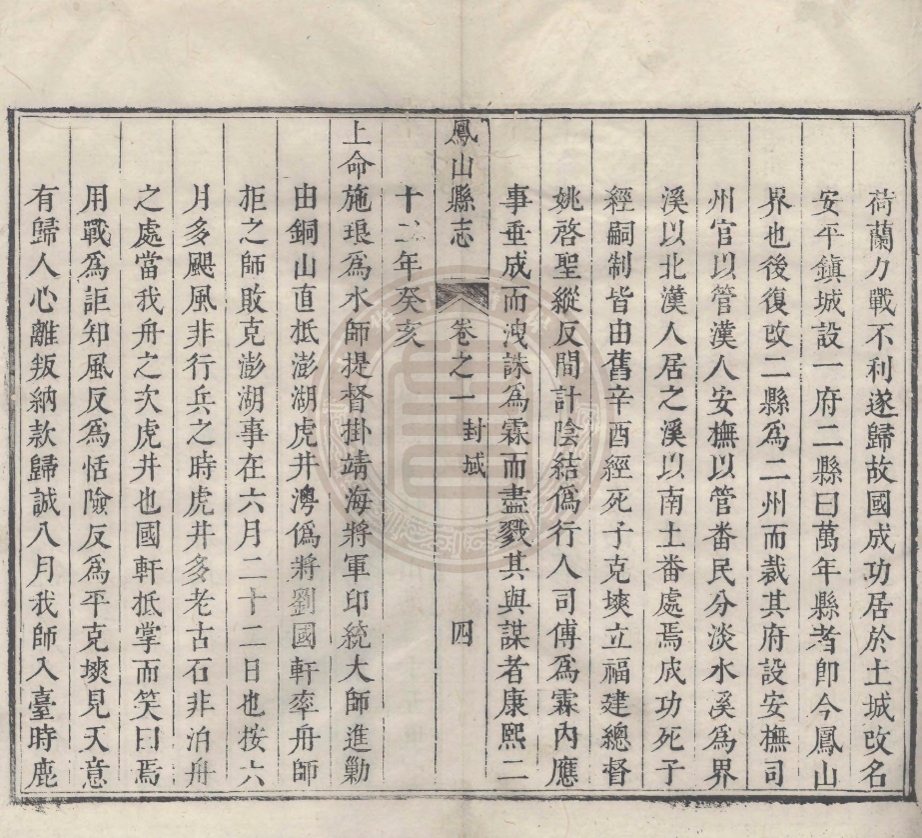 荷蘭力戰不利遂歸故國成功居於土城改名
安平鎮城設一府二縣曰萬年縣者即今鳳山
界也後復改二縣爲二州而裁其府設安撫司
州官以管漢人安撫以管番民分淡水溪爲界
溪以北漢人居之溪以南土番處焉成功死子
經嗣制皆由舊辛酉經死子克塽立福建總督
姚啓聖縱反間計陰結僞行人司傅爲霖內應
事垂成而洩誅爲霖而盡戮其與謀者康熙二
鳳山縣志 卷之一 封域 四
十二年癸亥
上命施琅爲水師提督掛靖海將軍印統大師進勦
由銅山直抵澎湖虎井澚僞將劉國軒率舟師
拒之師敗克澎湖事在六月二十二日也按六
月多颶風非行兵之時虎井多老古石非泊舟
之處當我舟之次虎井也國軒抵掌而笑曰焉
用戰爲詎知風反爲恬險反爲平克塽見天意
有歸人心離叛納款歸誠八月我師入臺時鹿